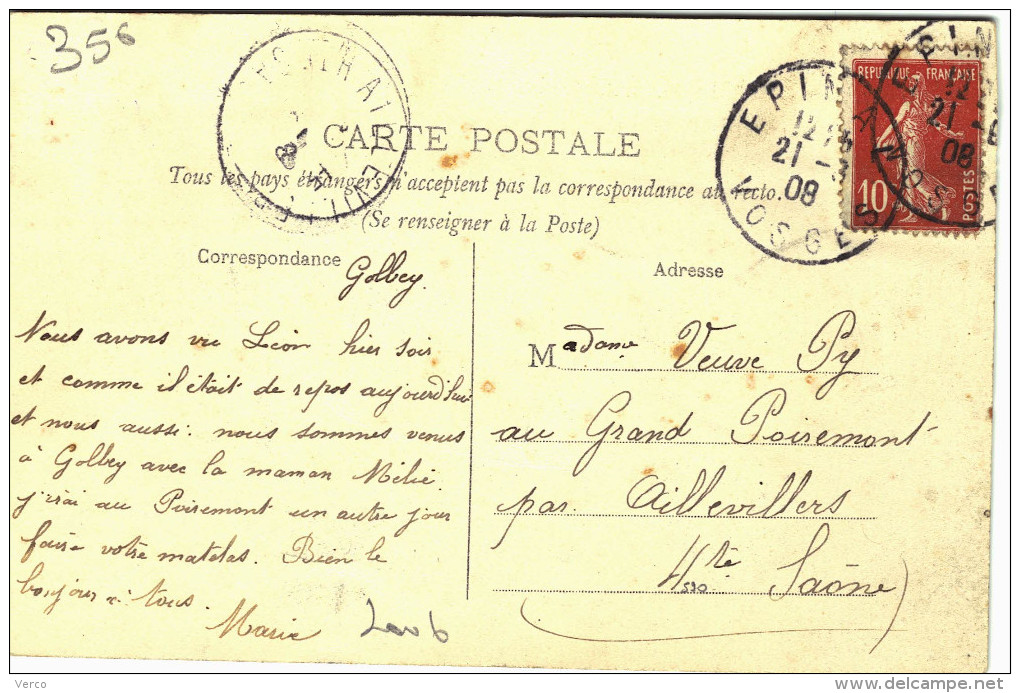 356
EPINAL
12
21 -
08
VOSGES
EPIN
12
21 - 6
08
REPUBLIQUE FRANÇAISE
10
POSTES
CARTE POSTALE
Tous les pays étrangers n'acceptent pas la correspondance au recto.
(Se renseigner à la Poste)
Correspondance
Adresse
Golbey.
Nous avons vu Léon hier soir
et comme il était de repos aujourd'hui
et nous aussi. nous sommes venus
à Golbey avec la maman Mélie.
j'irai au Poiremont un autre jour
faire votre matelas. Bien le
bonjour à tous.
Marie
Madame Veuve Py
au Grand Poiremont
par Aillevillers
Hte Saône
Verco
http://www.delcampe.net